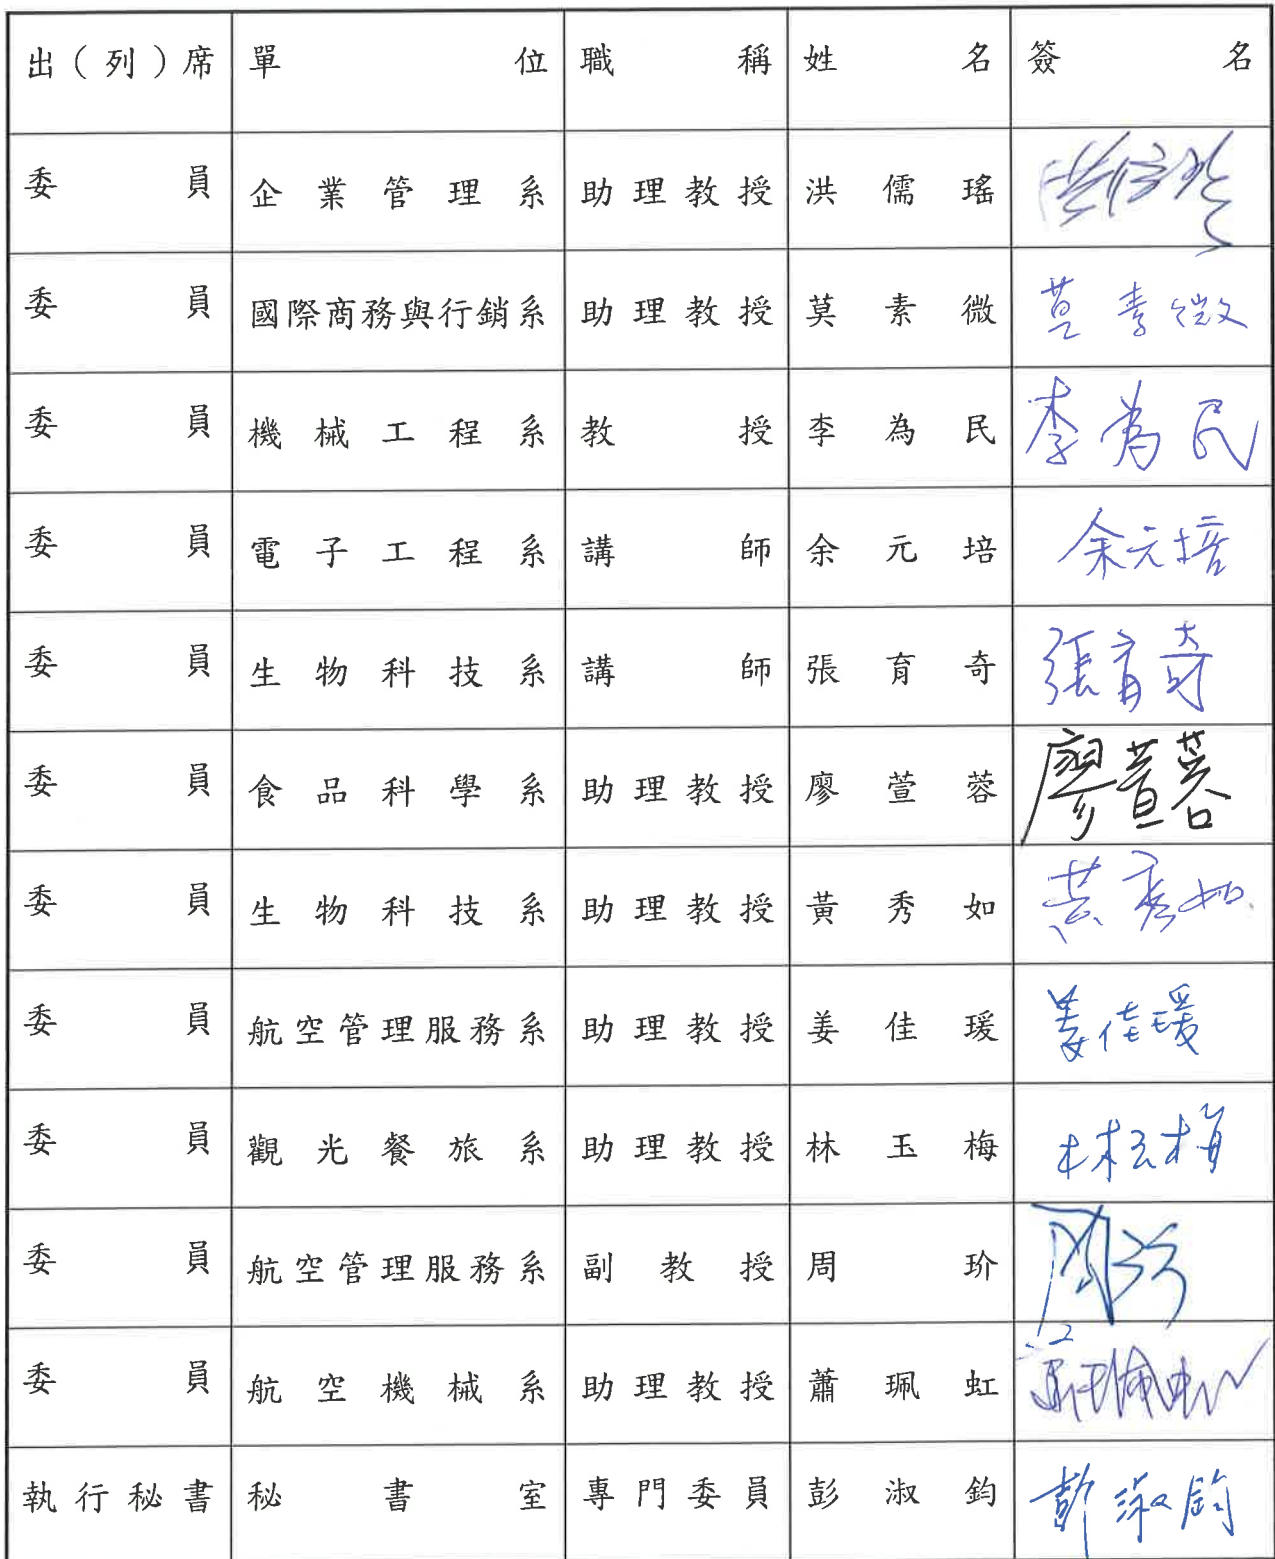 出（列）席 單位 職稱 姓名 簽名
委員 企業管理系 助理教授 洪儒瑤 洪儒瑤
委員 國際商務與行銷系 助理教授 莫素微 莫素微
委員 機械工程系 教授 李為民 李為民
委員 電子工程系 講師 余元培 余元培
委員 生物科技系 講師 張育奇 張育奇
委員 食品科學系 助理教授 廖萱蓉 廖萱蓉
委員 生物科技系 助理教授 黃秀如 黃秀如
委員 航空管理服務系 助理教授 姜佳瑗 姜佳瑗
委員 觀光餐旅系 助理教授 林玉梅 林玉梅
委員 航空管理服務系 副教授 周玠 周玠
委員 航空機械系 助理教授 蕭珮虹
執行秘書 秘書室 專門委員 彭淑鈞 彭淑鈞